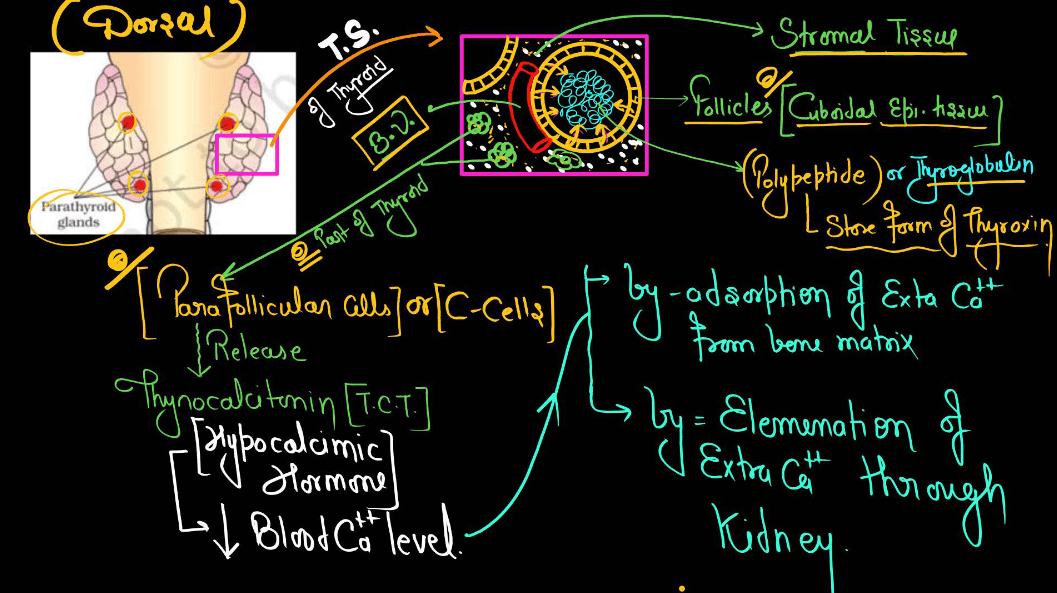 (Dorsal)
T.S.
of Thyroid
B.V.
Parathyroid
glands
Stromal Tissue
Follicles [Cuboidal Epi. tissue]
(Polypeptide) or Thyroglobulin
Store form of Thyroxin
Part of Thyroid
[Parafollicular cells] or [C-Cells]
Release
Thyrocalcitonin [T.C.T.]
[Hypocalcimic
Hormone]
↓ Blood Ca++ level.
by - adsorption of Exta Ca++
from bone matrix
by = Elemenation of
Extra Ca++ through
Kidney.